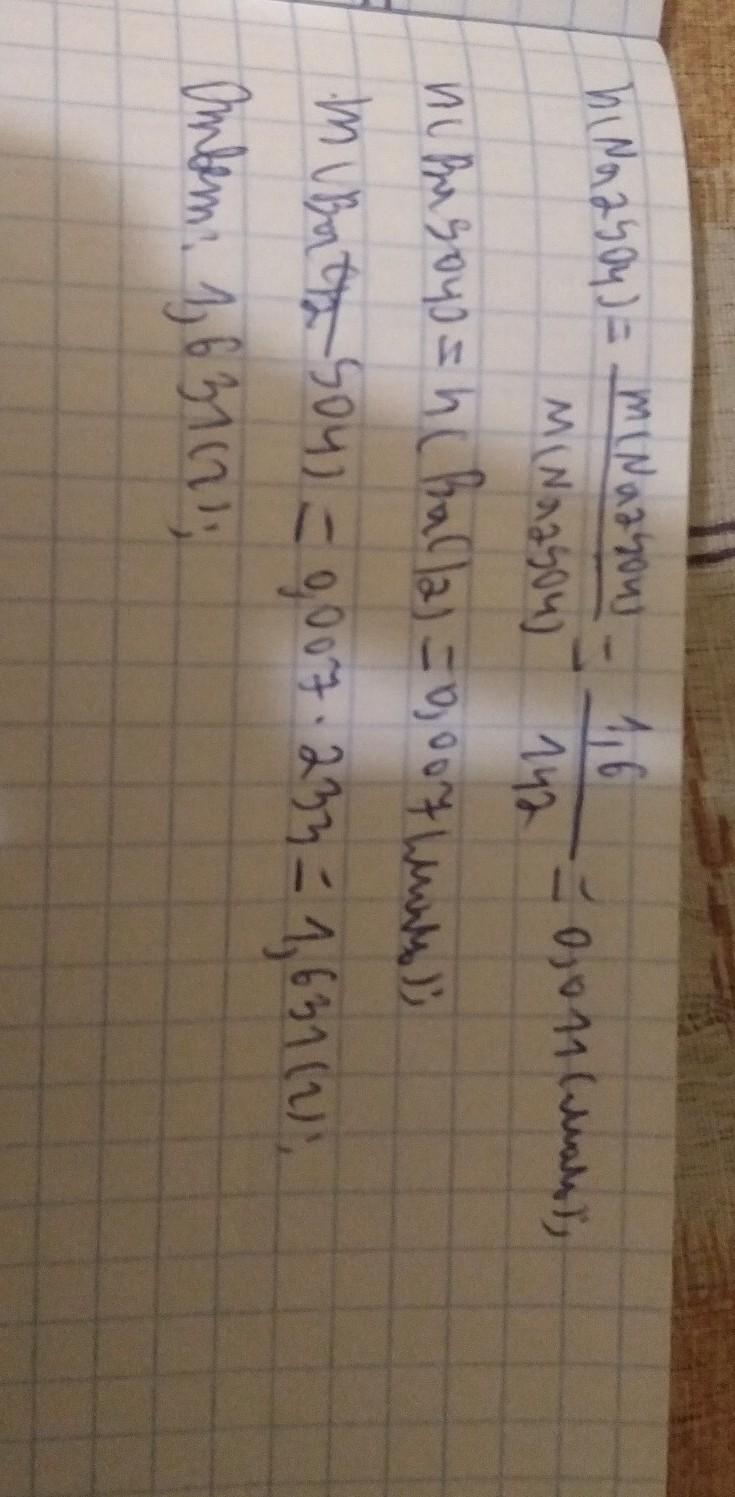 n(Na2SO4) = m(Na2SO4) / M(Na2SO4) = 1,6 / 142 = 0,011 (моль);
n(BaSO4) = n(BaCl2) = 0,007 (моль);
m(BaSO4) = 0,007 · 233 = 1,631 (г);
Ответ: 1,631 (г);